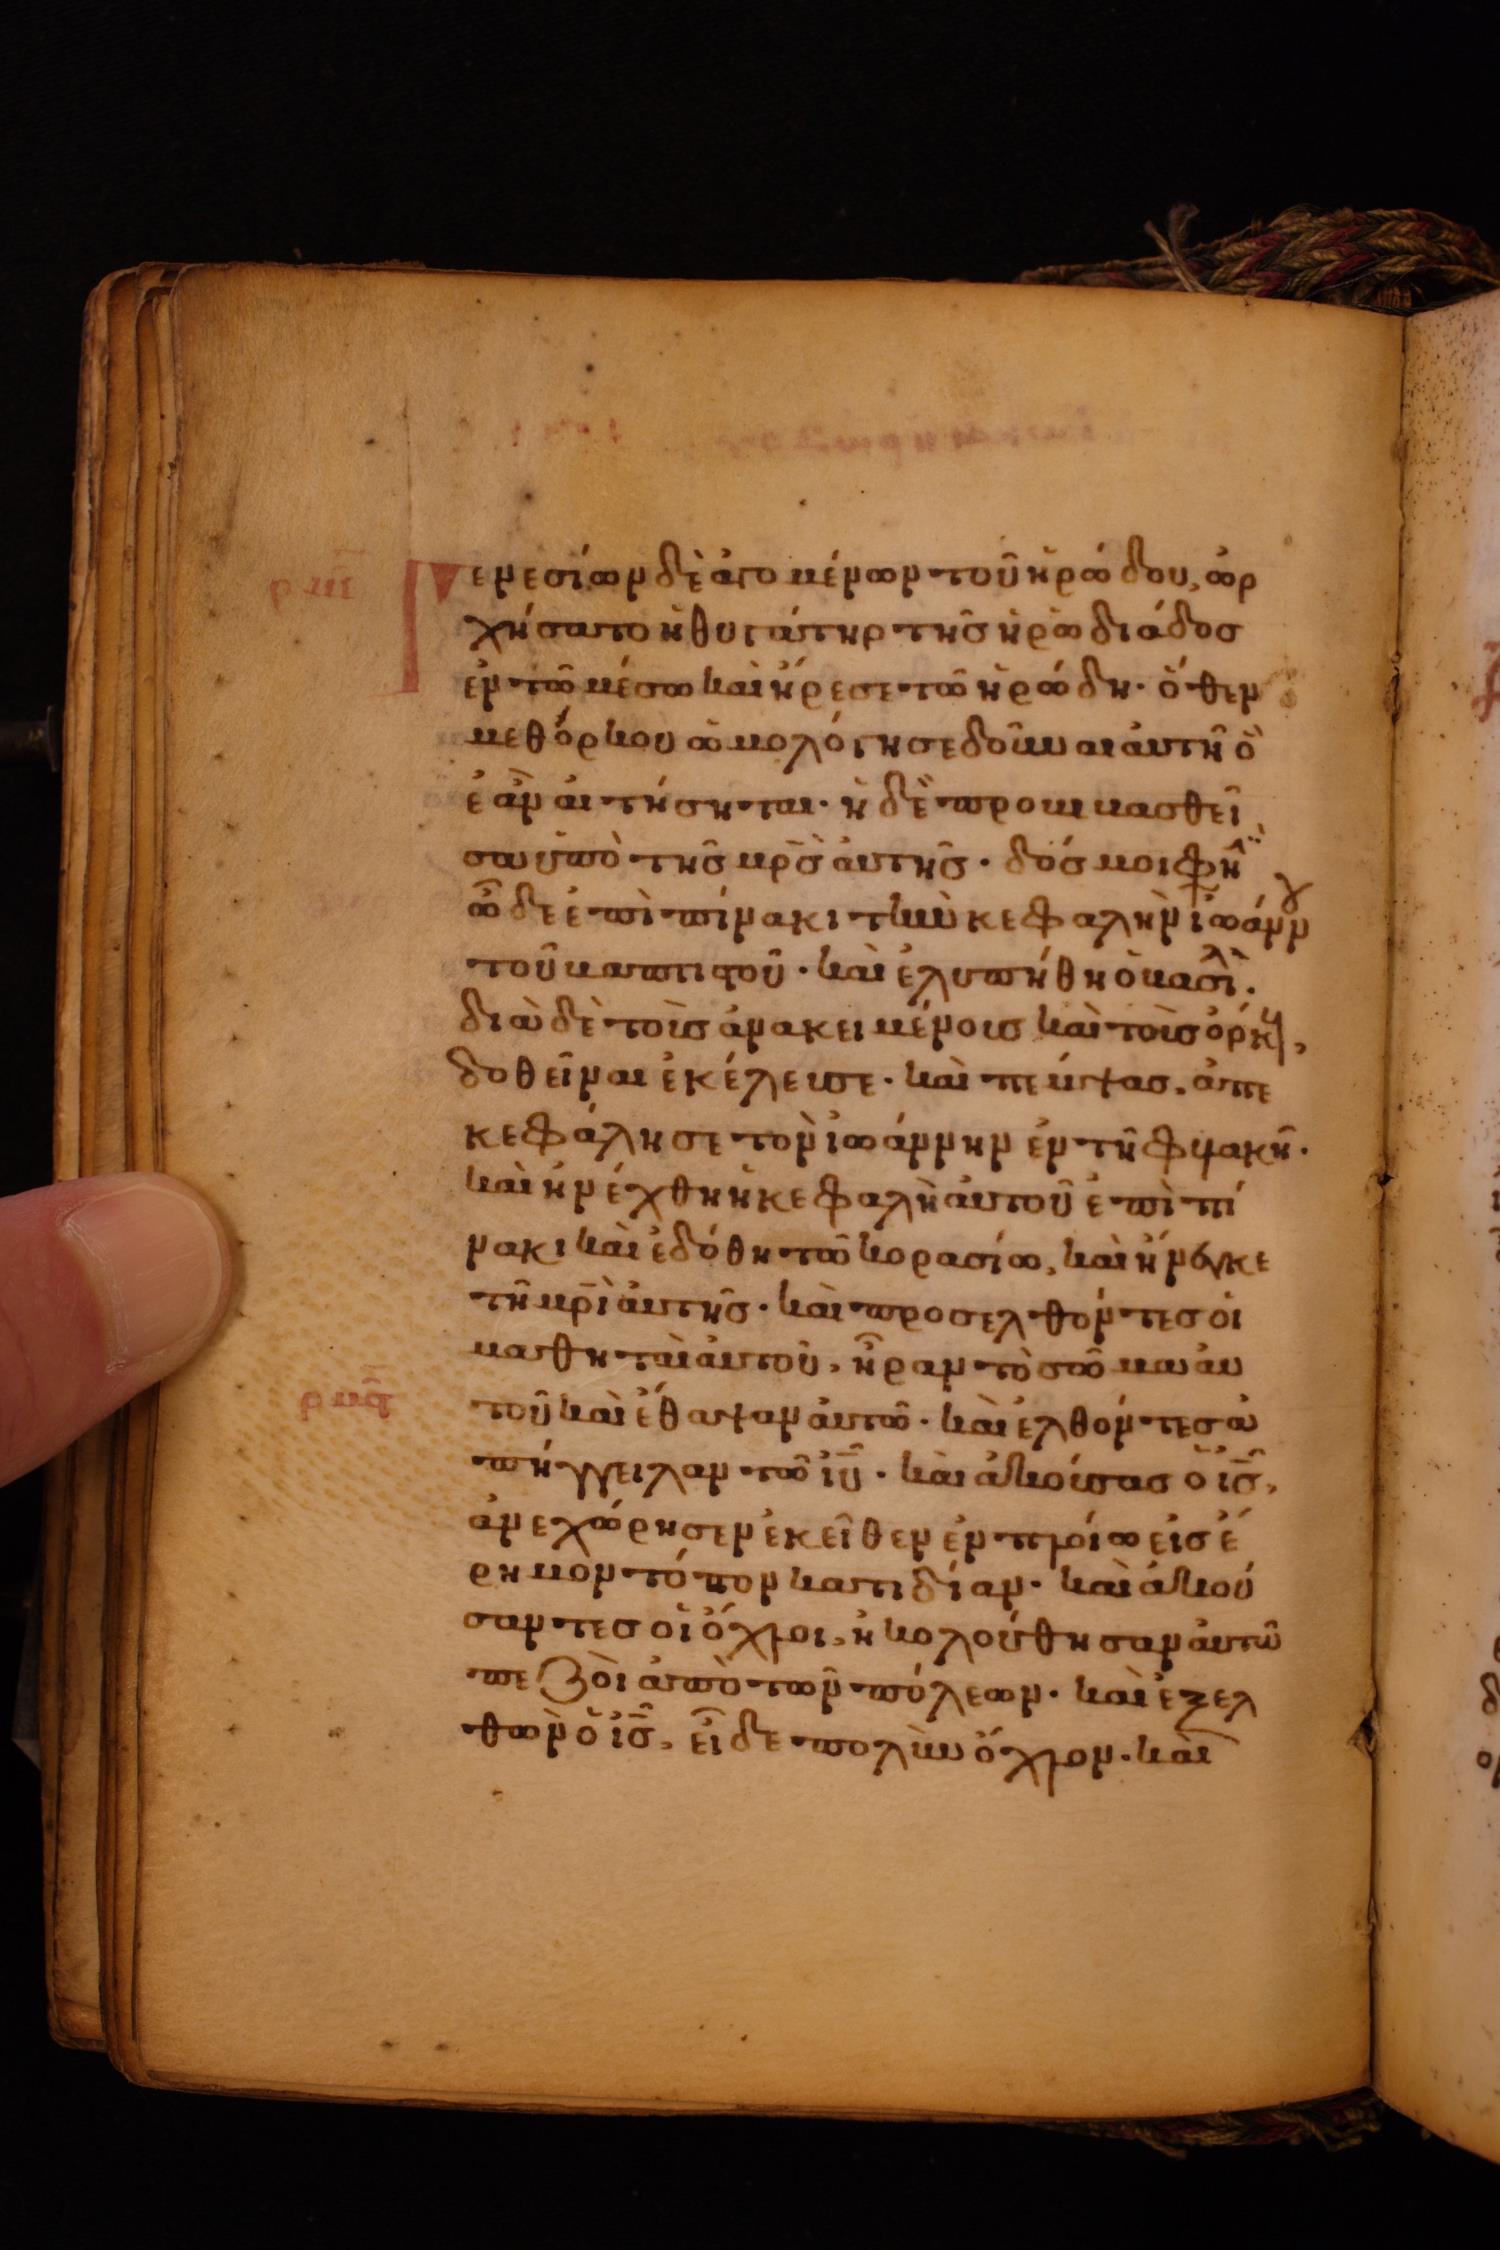 Γενεσίων δὲ ἀγομένων τοῦ ἡρώδου, ὠρ
χήσατο ἡ θυγάτηρ τῆς ἡρωδιάδος
ἐν τῶ μέσω καὶ ἤρεσε τῶ ἡρώδη· ὅθεν
μεθ' ὅρκου ὡμολόγησε δοῦναι αὐτῆ ὃ
ἐὰν αἰτήσηται· ἡ δὲ προβιβασθεῖ
σα ὑπὸ τῆς μρ̅ς αὐτῆς· δός μοι φη
ὧδε ἐπὶ πίνακι τὴν κεφαλὴν ἰωάνν
τοῦ βαπτιστοῦ· καὶ ἐλυπήθη ὁ βασιλ·
διὰ δὲ τοὺς ἀνακειμένους καὶ τοὺς ὅρκ,
δοθεῖναι ἐκέλευσε· καὶ πέμψας, ἀπε
κεφάλησε τὸν ἰωάννην ἐν τῆ φυλακῆ·
καὶ ἠνέχθη ἡ κεφαλὴ αὐτοῦ ἐπὶ πί
νακι καὶ ἐδόθη τῶ κορασίω, καὶ ἤνεγκε
τῆ μρ̅ὶ αὐτῆς· καὶ προσελθόντες οἱ
μαθηταὶ αὐτοῦ, ἦραν τὸ σῶμα αὐ
τοῦ καὶ ἔθαψαν αὐτῶ· καὶ ἐλθόντες ἀ
πήγγειλαν τῶ ἰυ̅· καὶ ἀκούσας ὁ ἰς̅,
ἀνεχώρησεν ἐκεῖθεν ἐν πλοίω εἰς ἔ
ρημον τόπον κατιδίαν· καὶ ἀκού
σαντες οἱ ὄχλοι, ἠκολούθησαν αὐτῶ
πεζοὶ ἀπὸ τῶν πόλεων· καὶ ἐξελ
θὼν ὁ ἰς̅, εἶδε πολὺν ὄχλον· καὶ